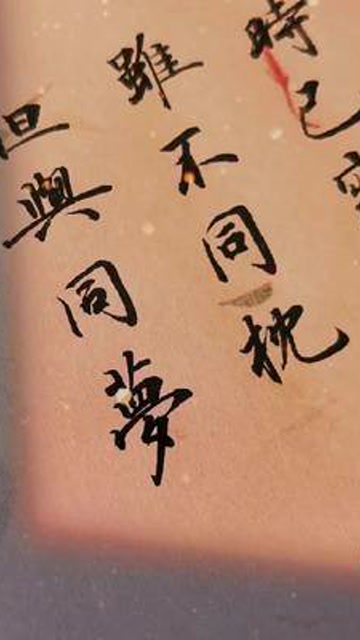 時已
雖不同枕
但與同夢